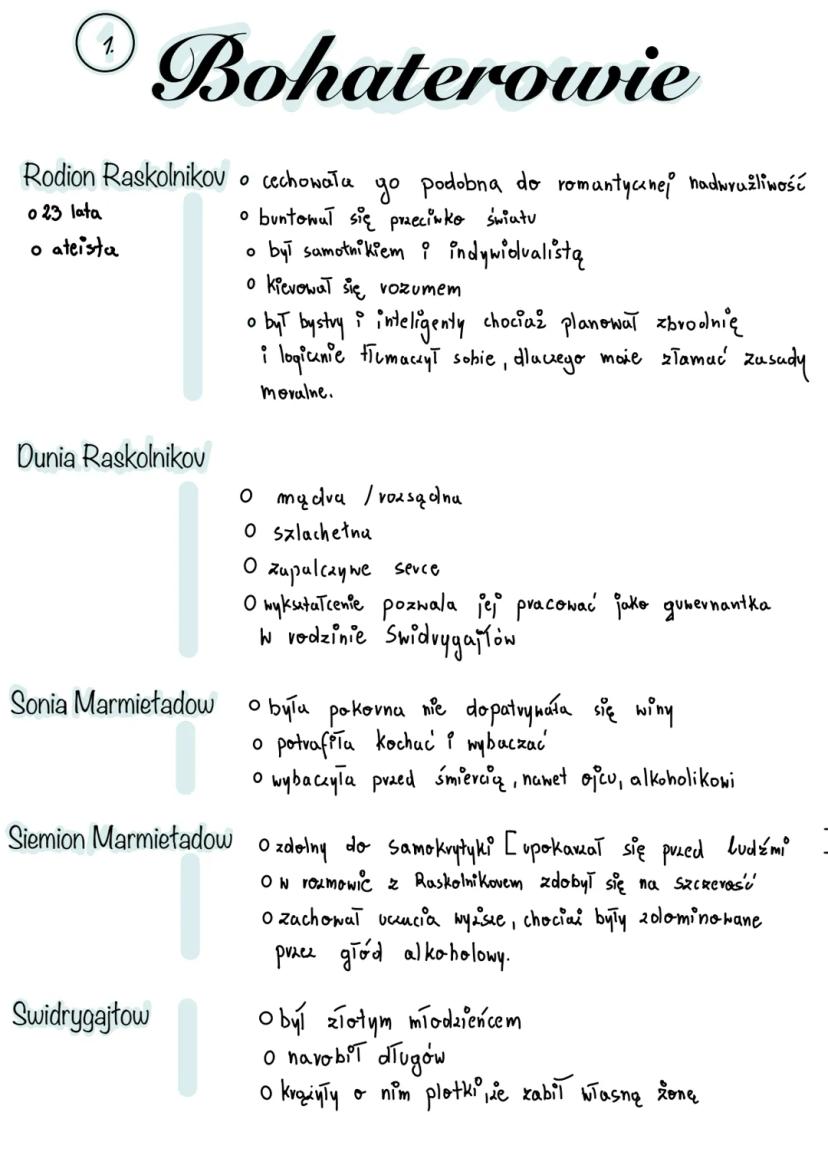 1.
Bohaterowie
Rodion Raskolnikov
o 23 lata
o ateista
o cechowała go podobna do romantycznej nadwrażliwość
o buntował się przeciwko światu
o był samotnikiem i indywidualistą
o kierował się rozumem
o był bystry i inteligenty chociaż planował zbrodnię
i logicznie tłumaczył sobie, dlaczego może złamać zasady
moralne.
Dunia Raskolnikov
o mądra / rozsądna
o szlachetna
o zapalczywe serce
o wykształcenie pozwala jej pracować jako guwernantka
w rodzinie Swidrygajłów
Sonia Marmieładow
o była pokorna nie dopatrywała się winy
o potrafiła kochać i wybaczać
o wybaczyła przed śmiercią, nawet ojcu, alkoholikowi
Siemion Marmieładow
o zdolny do samokrytyki [upokarzał się przed ludźmi
o w rozmowie z Raskolnikovem zdobył się na szczerość
o zachował uczucia wyższe, chociaż były zdominowane
przez głód alkoholowy.
Swidrygajłow
o był złotym młodzieńcem
o narobił długów
o krążyły o nim plotki, że zabił własną żonę